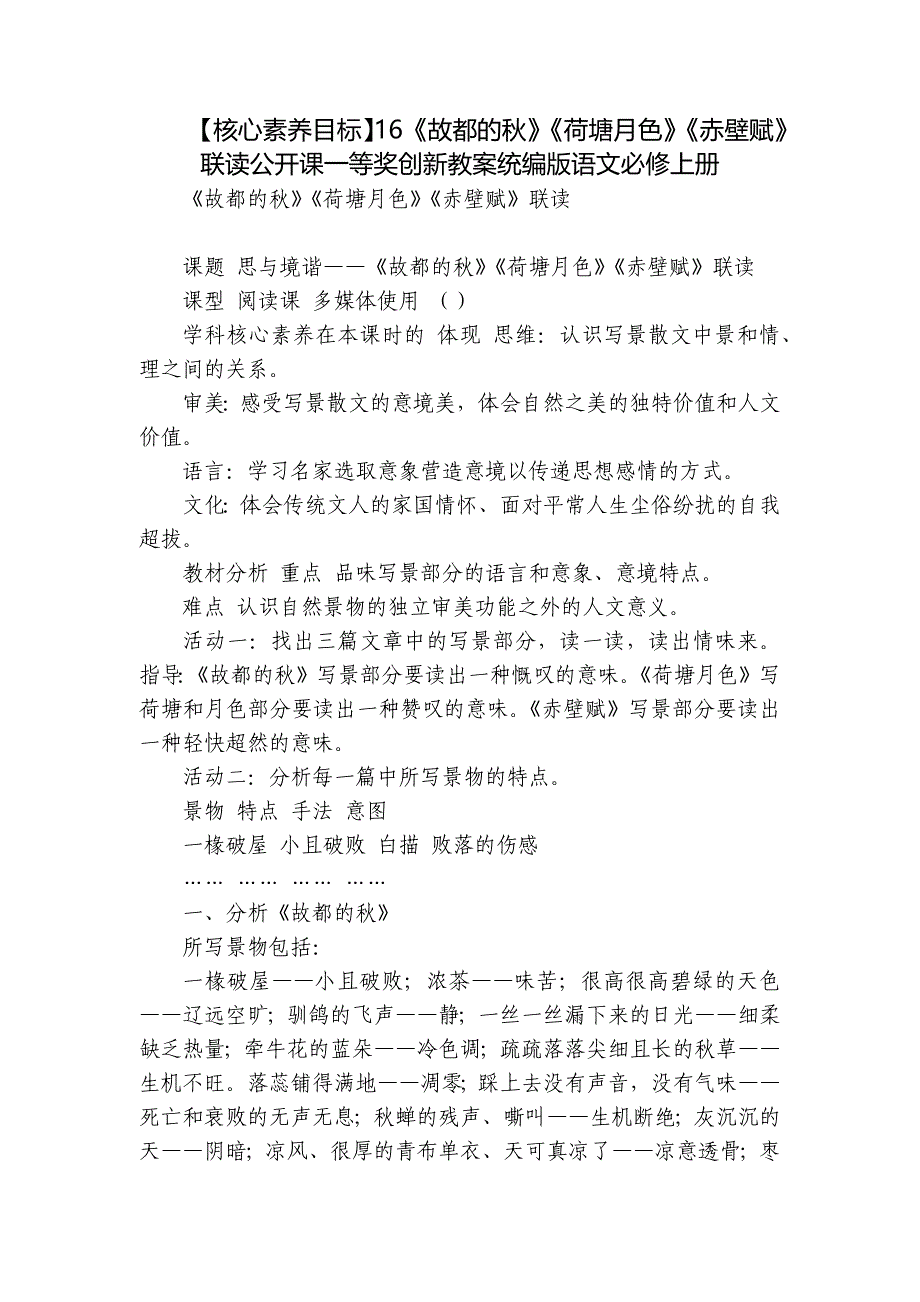 【核心素养目标】16《故都的秋》《荷塘月色》《赤壁赋》
联读公开课一等奖创新教案统编版语文必修上册
《故都的秋》《荷塘月色》《赤壁赋》联读
课题 思与境谐——《故都的秋》《荷塘月色》《赤壁赋》联读
课型 阅读课 多媒体使用 （ ）
学科核心素养在本课时的 体现 思维：认识写景散文中景和情、
理之间的关系。
审美：感受写景散文的意境美，体会自然之美的独特价值和人文
价值。
语言：学习名家选取意象营造意境以传递思想感情的方式。
文化：体会传统文人的家国情怀、面对平常人生尘俗纷扰的自我
超拔。
教材分析 重点 品味写景部分的语言和意象、意境特点。
难点 认识自然景物的独立审美功能之外的人文意义。
活动一：找出三篇文章中的写景部分，读一读，读出情味来。
指导：《故都的秋》写景部分要读出一种慨叹的意味。《荷塘月色》写
荷塘和月色部分要读出一种赞叹的意味。《赤壁赋》写景部分要读出
一种轻快超然的意味。
活动二：分析每一篇中所写景物的特点。
景物 特点 手法 意图
一椽破屋 小且破败 白描 败落的伤感
…… …… …… ……
一、分析《故都的秋》
所写景物包括：
一椽破屋——小且破败；浓茶——味苦；很高很高碧绿的天色
——辽远空旷；驯鸽的飞声——静；一丝一丝漏下来的日光——细柔
缺乏热量；牵牛花的蓝朵——冷色调；疏疏落落尖细且长的秋草——
生机不旺。落蕊铺得满地——凋零；踩上去没有声音，没有气味——
死亡和衰败的无声无息；秋蝉的残声、嘶叫——生机断绝；灰沉沉的
天——阴暗；凉风、很厚的青布单衣、天可真凉了——凉意透骨；枣